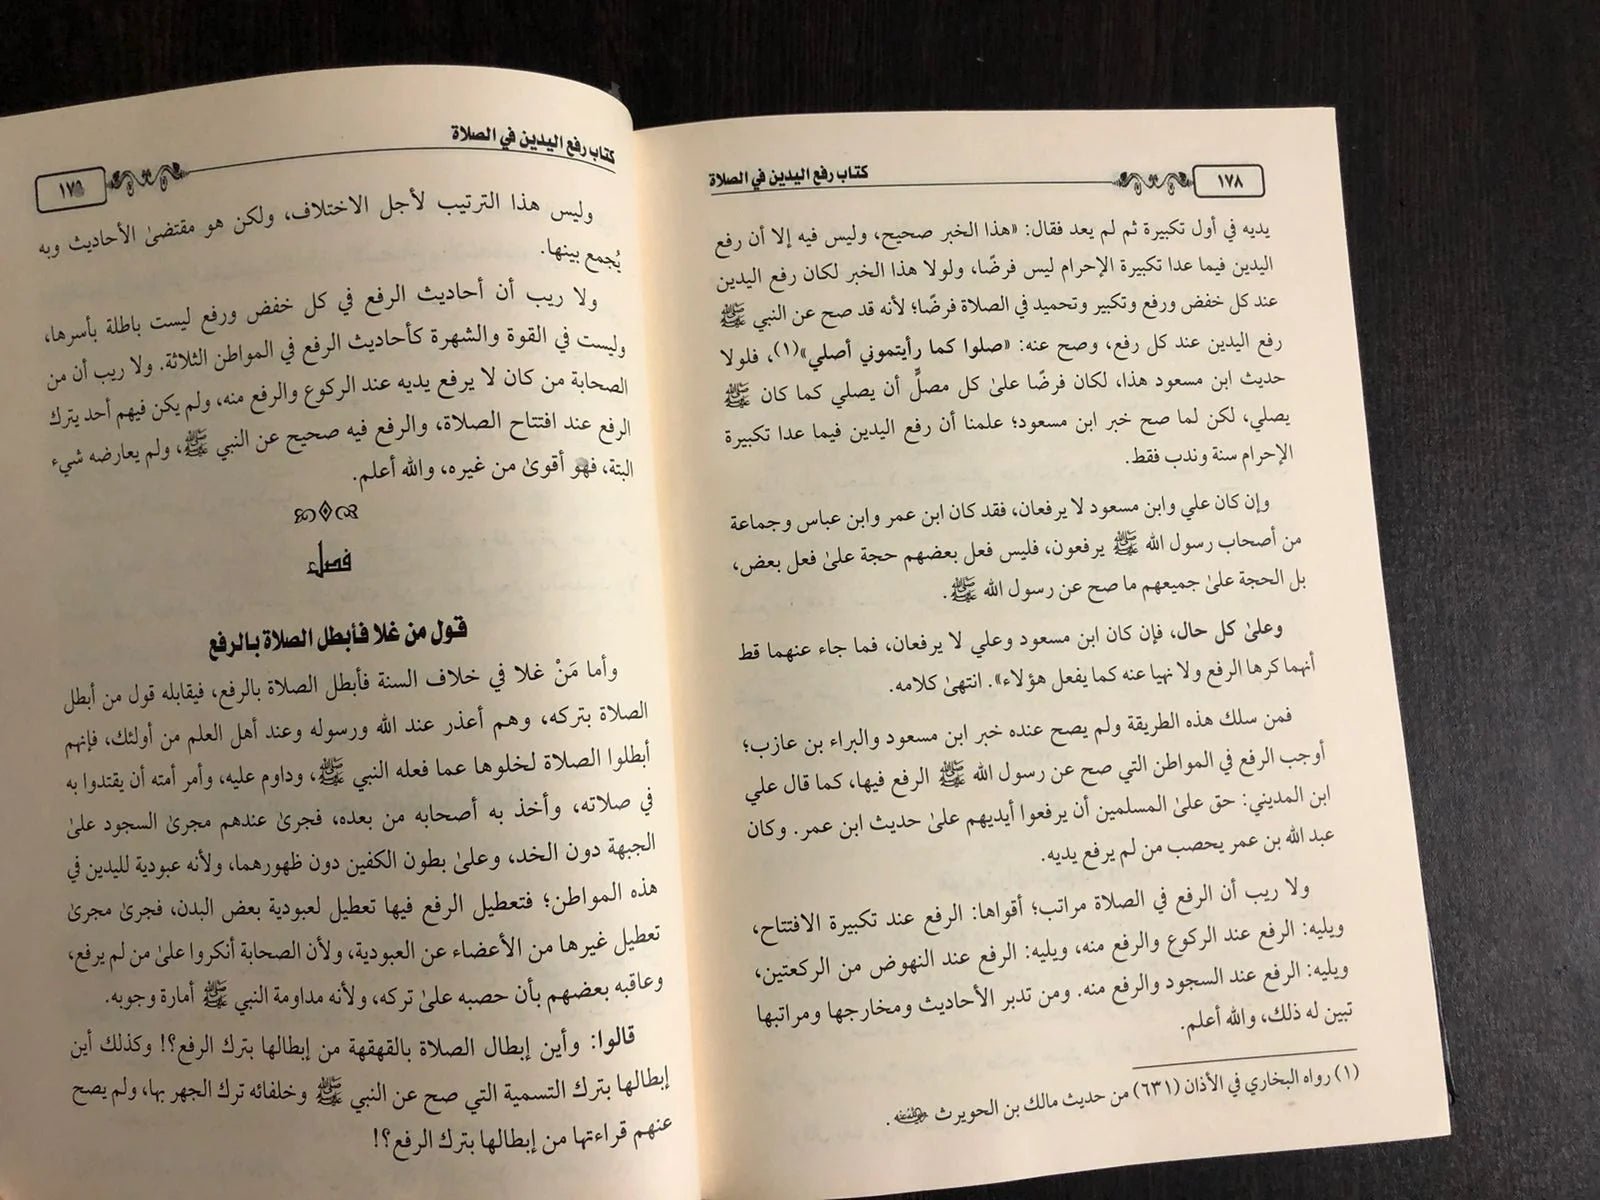 ١٧٨
كتاب رفع اليدين في الصلاة
يديه في أول تكبيرة ثم لم يعد فقال: «هذا الخبر صحيح، وليس فيه إلا أن رفع
اليدين فيما عدا تكبيرة الإحرام ليس فرضًا، ولولا هذا الخبر لكان رفع اليدين
عند كل خفض ورفع وتكبير وتحميد في الصلاة فرضًا؛ لأنه قد صح عن النبي ﷺ
رفع اليدين عند كل رفع، وصح عنه: «صلوا كما رأيتموني أصلي»(١)، فلولا
حديث ابن مسعود هذا، لكان فرضًا علىٰ كل مصلٍّ أن يصلي كما كان ﷺ
يصلي، لكن لما صح خبر ابن مسعود؛ علمنا أن رفع اليدين فيما عدا تكبيرة
الإحرام سنة وندب فقط.
وإن كان علي وابن مسعود لا يرفعان، فقد كان ابن عمر وابن عباس وجماعة
من أصحاب رسول الله ﷺ يرفعون، فليس فعل بعضهم حجة علىٰ فعل بعض،
بل الحجة علىٰ جميعهم ما صح عن رسول الله ﷺ.
وعلىٰ كل حال، فإن كان ابن مسعود وعلي لا يرفعان، فما جاء عنهما قط
أنهما كرها الرفع ولا نهيا عنه كما يفعل هؤلاء». انتهىٰ كلامه.
فمن سلك هذه الطريقة ولم يصح عنده خبر ابن مسعود والبراء بن عازب؛
أوجب الرفع في المواطن التي صح عن رسول الله ﷺ الرفع فيها، كما قال علي
ابن المديني: حق علىٰ المسلمين أن يرفعوا أيديهم علىٰ حديث ابن عمر. وكان
عبد الله بن عمر يحصب من لم يرفع يديه.
ولا ريب أن الرفع في الصلاة مراتب؛ أقواها: الرفع عند تكبيرة الافتتاح،
ويليه: الرفع عند الركوع والرفع منه، ويليه: الرفع عند النهوض من الركعتين،
ويليه: الرفع عند السجود والرفع منه. ومن تدبر الأحاديث ومخارجها ومراتبها
تبين له ذلك، والله أعلم.
(١) رواه البخاري في الأذان (٦٣١) من حديث مالك بن الحويرث رضي الله عنه.
كتاب رفع اليدين في الصلاة
وليس هذا الترتيب لأجل الاختلاف، ولكن هو مقتضىٰ الأحاديث وبه
يُجمع بينها.
ولا ريب أن أحاديث الرفع في كل خفض ورفع ليست باطلة بأسرها،
وليست في القوة والشهرة كأحاديث الرفع في المواطن الثلاثة. ولا ريب أن من
الصحابة من كان لا يرفع يديه عند الركوع والرفع منه، ولم يكن فيهم أحد يترك
الرفع عند افتتاح الصلاة، والرفع فيه صحيح عن النبي ﷺ، ولم يعارضه شيء
البتة، فهو أقوىٰ من غيره، والله أعلم.
فصل
قول من غلا فأبطل الصلاة بالرفع
وأما مَنْ غلا في خلاف السنة فأبطل الصلاة بالرفع، فيقابله قول من أبطل
الصلاة بتركه، وهم أعذر عند الله ورسوله وعند أهل العلم من أولئك، فإنهم
أبطلوا الصلاة لخلوها عما فعله النبي ﷺ، وداوم عليه، وأمر أمته أن يقتدوا به
في صلاته، وأخذ به أصحابه من بعده، فجرىٰ عندهم مجرىٰ السجود علىٰ
الجبهة دون الخد، وعلىٰ بطون الكفين دون ظهورهما، ولأنه عبودية لليدين في
هذه المواطن؛ فتعطيل الرفع فيها تعطيل لعبودية بعض البدن، فجرىٰ مجرىٰ
تعطيل غيرها من الأعضاء عن العبودية، ولأن الصحابة أنكروا علىٰ من لم يرفع،
وعاقبه بعضهم بأن حصبه علىٰ تركه، ولأنه مداومة النبي ﷺ أمارة وجوبه.
قالوا: وأين إبطال الصلاة بالقهقهة من إبطالها بترك الرفع؟! وكذلك أين
إبطالها بترك التسمية التي صح عن النبي ﷺ وخلفائه ترك الجهر بها، ولم يصح
عنهم قراءتها من إبطالها بترك الرفع؟!